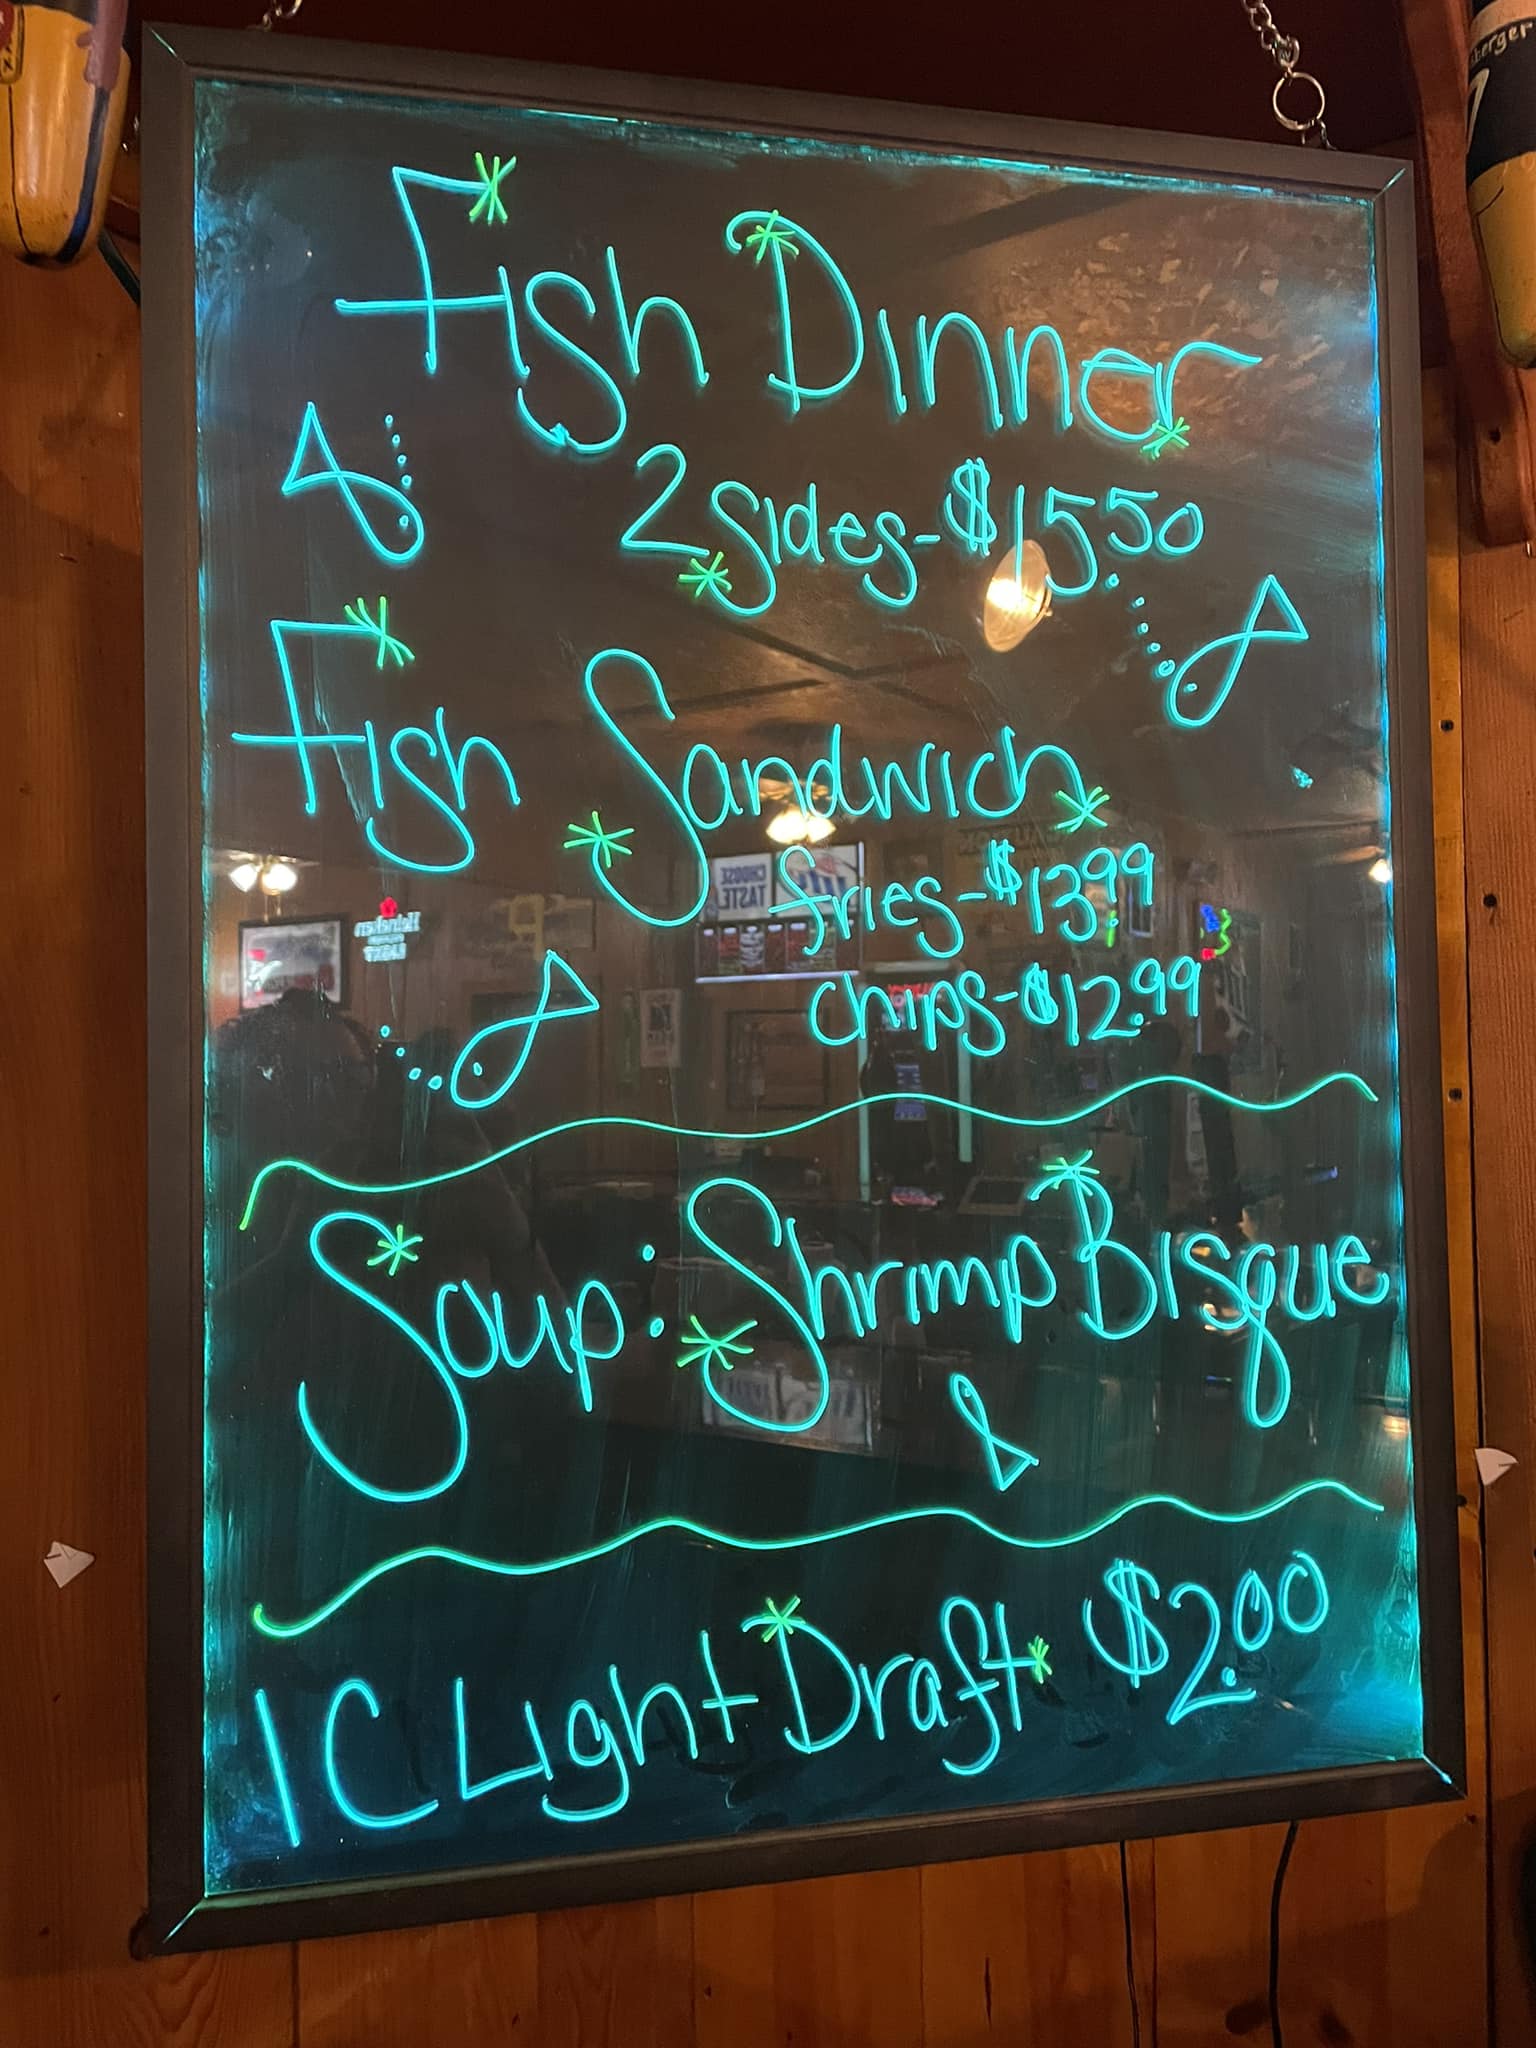 Fish Dinner
2 sides - $15.50
Fish Sandwich
fries - $13.99
chips - $12.99
Soup: Shrimp Bisque
IC Light Draft $2.00
CHOOSE
TASTE
Heineken
berger
7